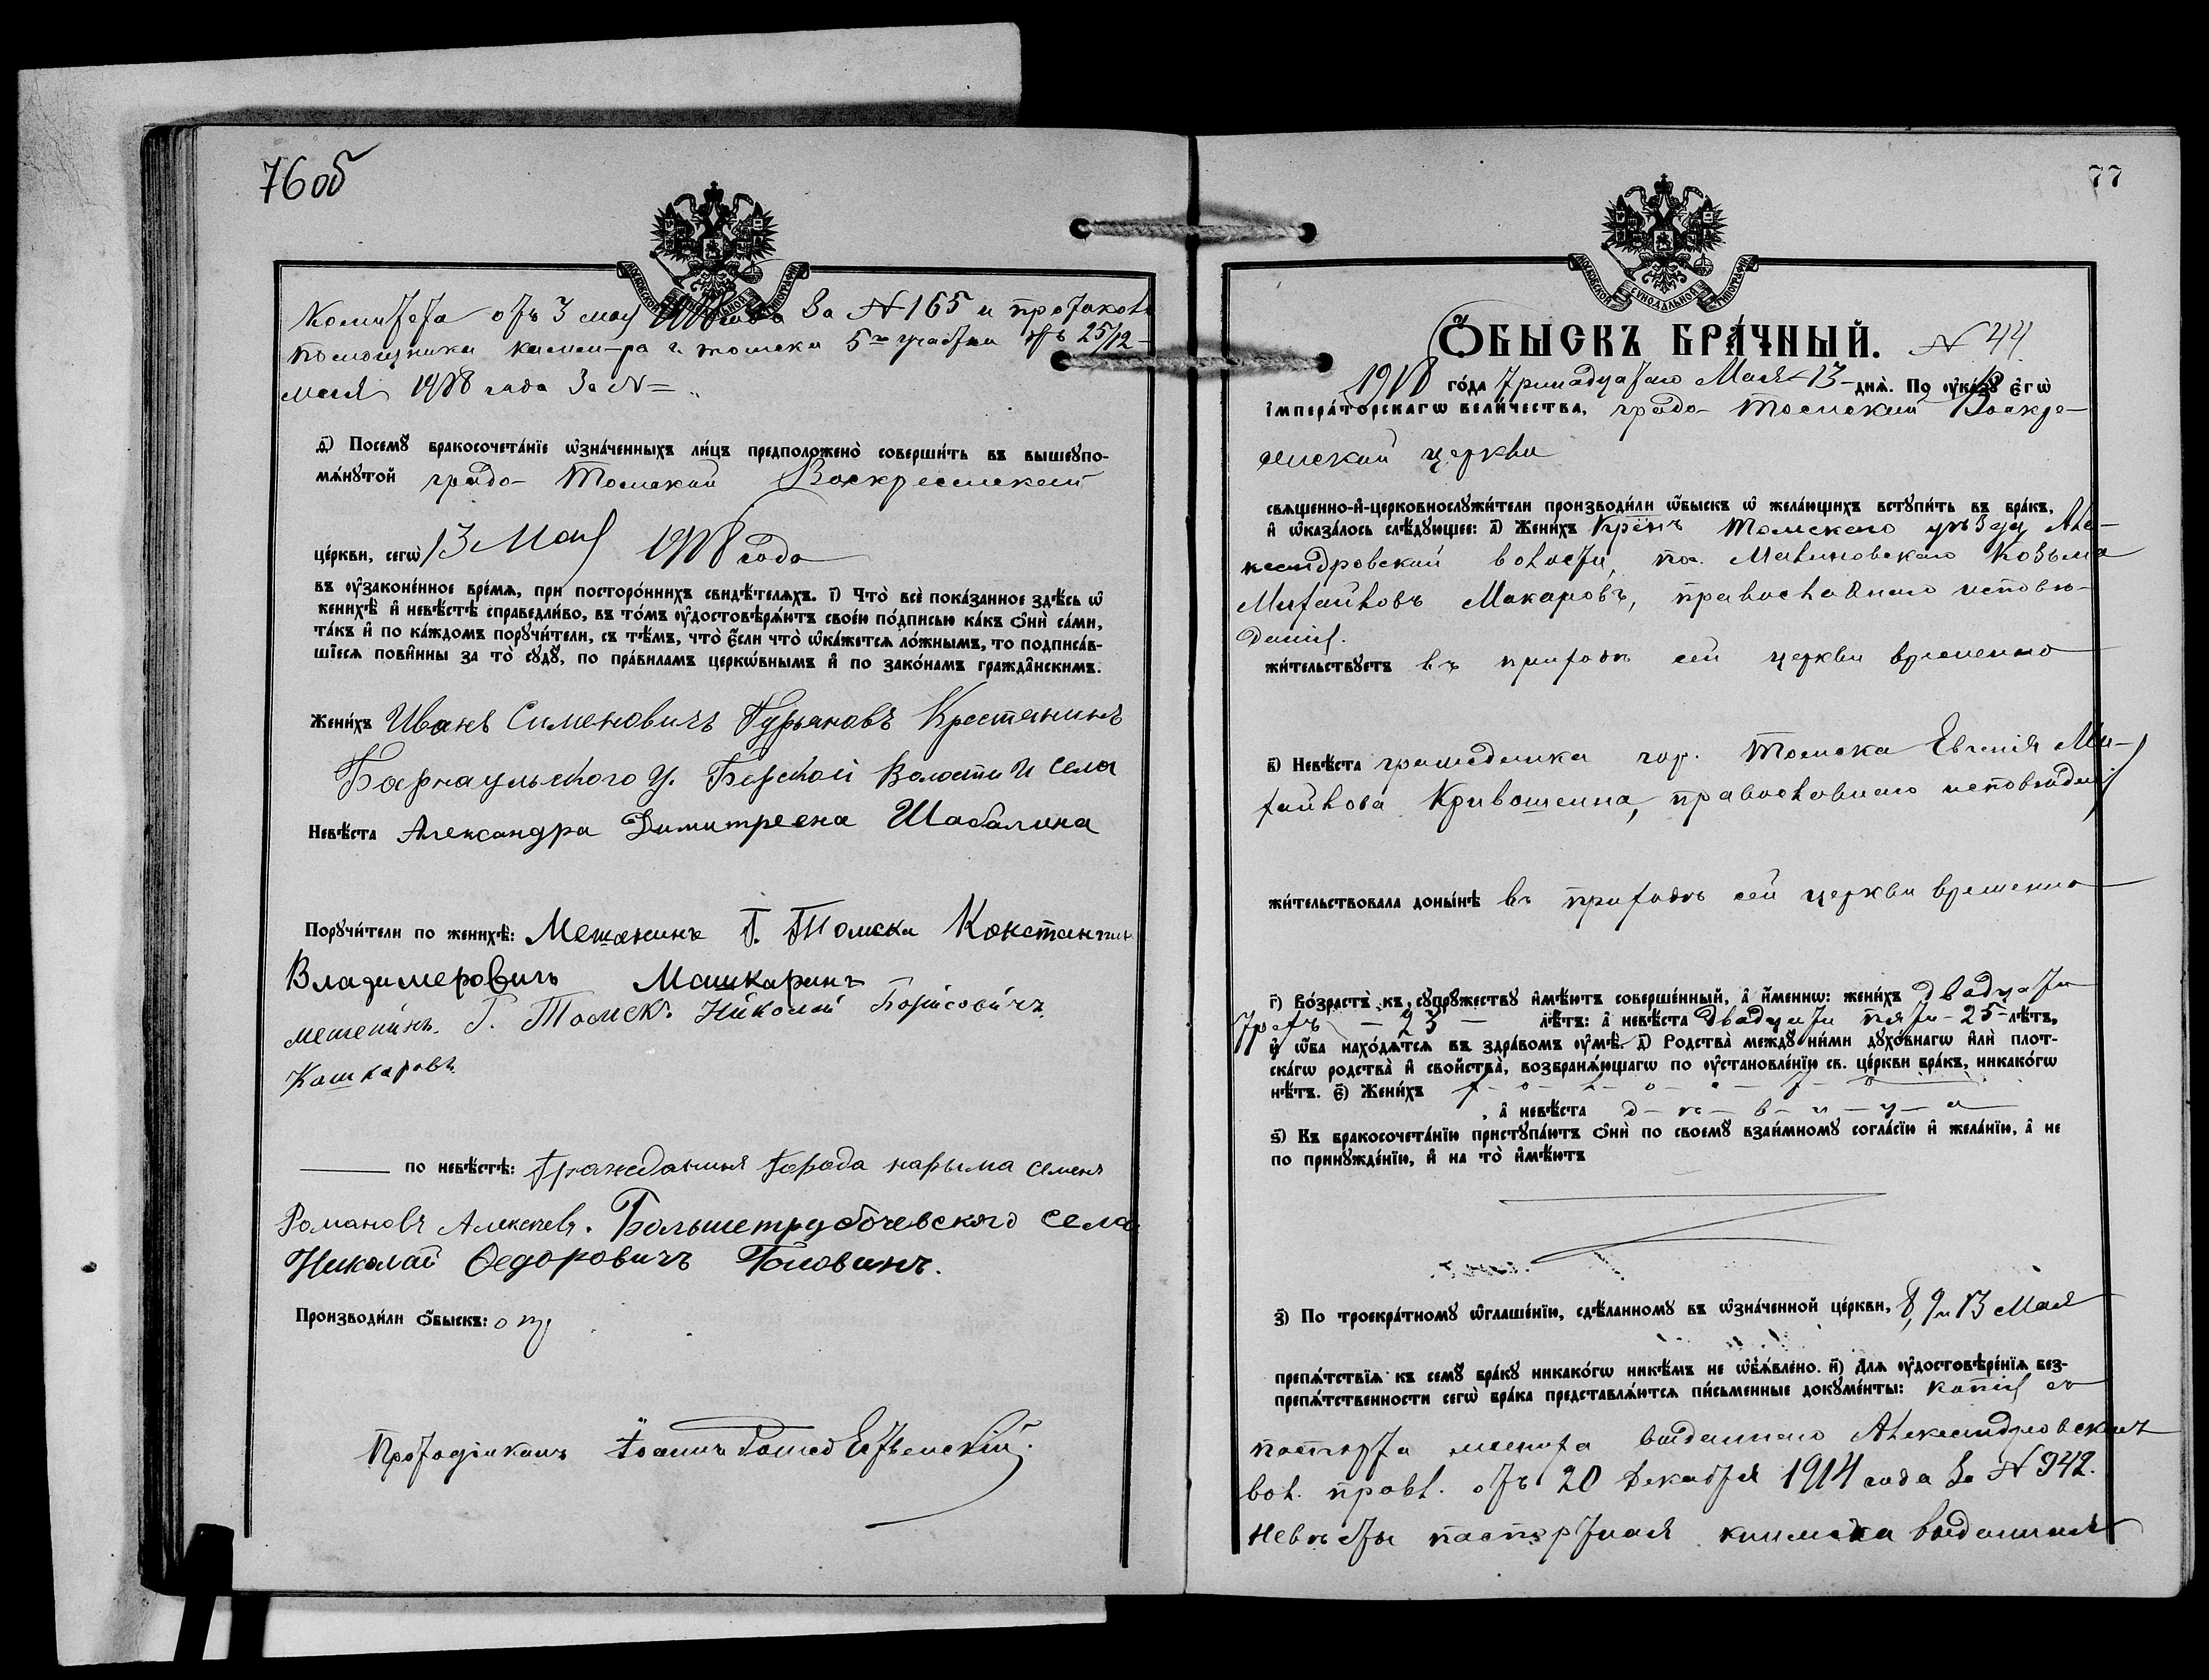 76 об
МОСКОВСКОЙ СѴНОДАЛЬНОЙ ТИПОГРАФІИ
Комитета отъ 3 мая 1918 года за № 165 и протоколъ
помощника г. Томска 5го участка отъ 25/12
мая 1918 года за № =
д҃і) Посемꙋ бракосочетанїе ѡзначенныхъ лицъ предположено совершить въ вышеꙋпо-
мѧнꙋтой градо- Томской Воскресенской
церкви, сегѡ 13 Мая 1918 года
въ оузаконенное время, при постороннихъ свидѣтеляхъ. і҃) Что все показанное здѣсь ѡ
женихѣ и невѣстѣ справедливо, въ томъ оудостовѣряютъ своею подписью какъ ѻни сами,
такъ и по каждомъ порꙋчители, съ тѣмъ, что если что ѡкажется ложнымъ, то подписав-
шїеся повинны за то сꙋдꙋ, по правиламъ церковнымъ и по законамъ гражданскимъ.
Женихъ Иванъ Сименовичъ Гурьяновъ Крестянинъ
Барнаульского у. Берской Волости и села
Невѣста Александра Димитреена Шабалина
Порꙋчители по женихѣ: Мешанинъ Г. Томска Константин
Владимеровичъ Машкаринъ
мешенинъ. Г. Томск. Николай Борисовичъ
Кашкаровъ
по невѣстѣ: Гражданинъ Города нарыма Семенъ
Романовъ Алексеевъ. Большетрубочевского села
Николай Ѳедоровичъ Головинъ.
Производили ѻбыскъ:
Протодіаконъ Іоаннъ
77
МОСКОВСКОЙ СѴНОДАЛЬНОЙ ТИПОГРАФІИ
ѺБЫСКЪ БРАЧНЫЙ. № 44
1918 года тринадцатаго Мая 13 дня. По оуказꙋ егѡ
императорскагѡ величества, градо- Томской Воскре-
сенской церкви
священно-и-церковнослꙋжители производили ѻбыскъ ѡ желающихъ встꙋпить въ бракъ,
и ѡказалось слѣдꙋющее: а҃) Женихъ Крѣнъ Томскаго уѣзда Але-
ксандровской волости, пос. Малиновскаго Козьма
Михайловъ Макаровъ, православнаго исповѣ-
данія.
жительствꙋетъ въ приходѣ сей церкви временно
в҃) Невѣста гражданка гор. Томска Евгенія Ми-
хайлова Кривошеина, православнаго исповѣданія
жительствовала донынѣ въ приходѣ сей церкви временно
г҃) Возрастъ къ сꙋпрꙋжествꙋ имѣютъ совершенный, а именнѡ: женихъ двадцати
трехъ - 23 - лѣтъ: а невѣста двадцати пяти - 25 - лѣтъ,
и ѻба находятся въ здравомъ оумѣ. д҃) Родства междꙋ ними дꙋховнагѡ или плот-
скагѡ родства и свойства, возбраняющагѡ по оустановленїю св. церкви бракъ, никакогѡ
нѣтъ. є҃) Женихъ х - о - л - о - с - т - ъ
, а невѣста д - ѣ - в - и - ц - а
ѕ҃) Къ бракосочетанїю пристꙋпаютъ ѻни по своемꙋ взаимномꙋ согласїю и желанїю, а не
по принꙋжденїю, и на то имѣютъ
з҃) По троекратномꙋ ѡглашенїю, сдѣланномꙋ въ ѡзначенной церкви, 8, 9 и 13 Мая
препятствїя къ семꙋ бракꙋ никакогѡ никѣмъ не ѡбъявлено. и҃) Для оудостовѣренїя без-
препятственности сегѡ брака представляются письменные докꙋменты: копія съ
паспорта жениха выданнаго Александровскимъ
вол. правл. отъ 20 декабря 1914 года за № 942.
Невѣсты паспортная книжка выданная